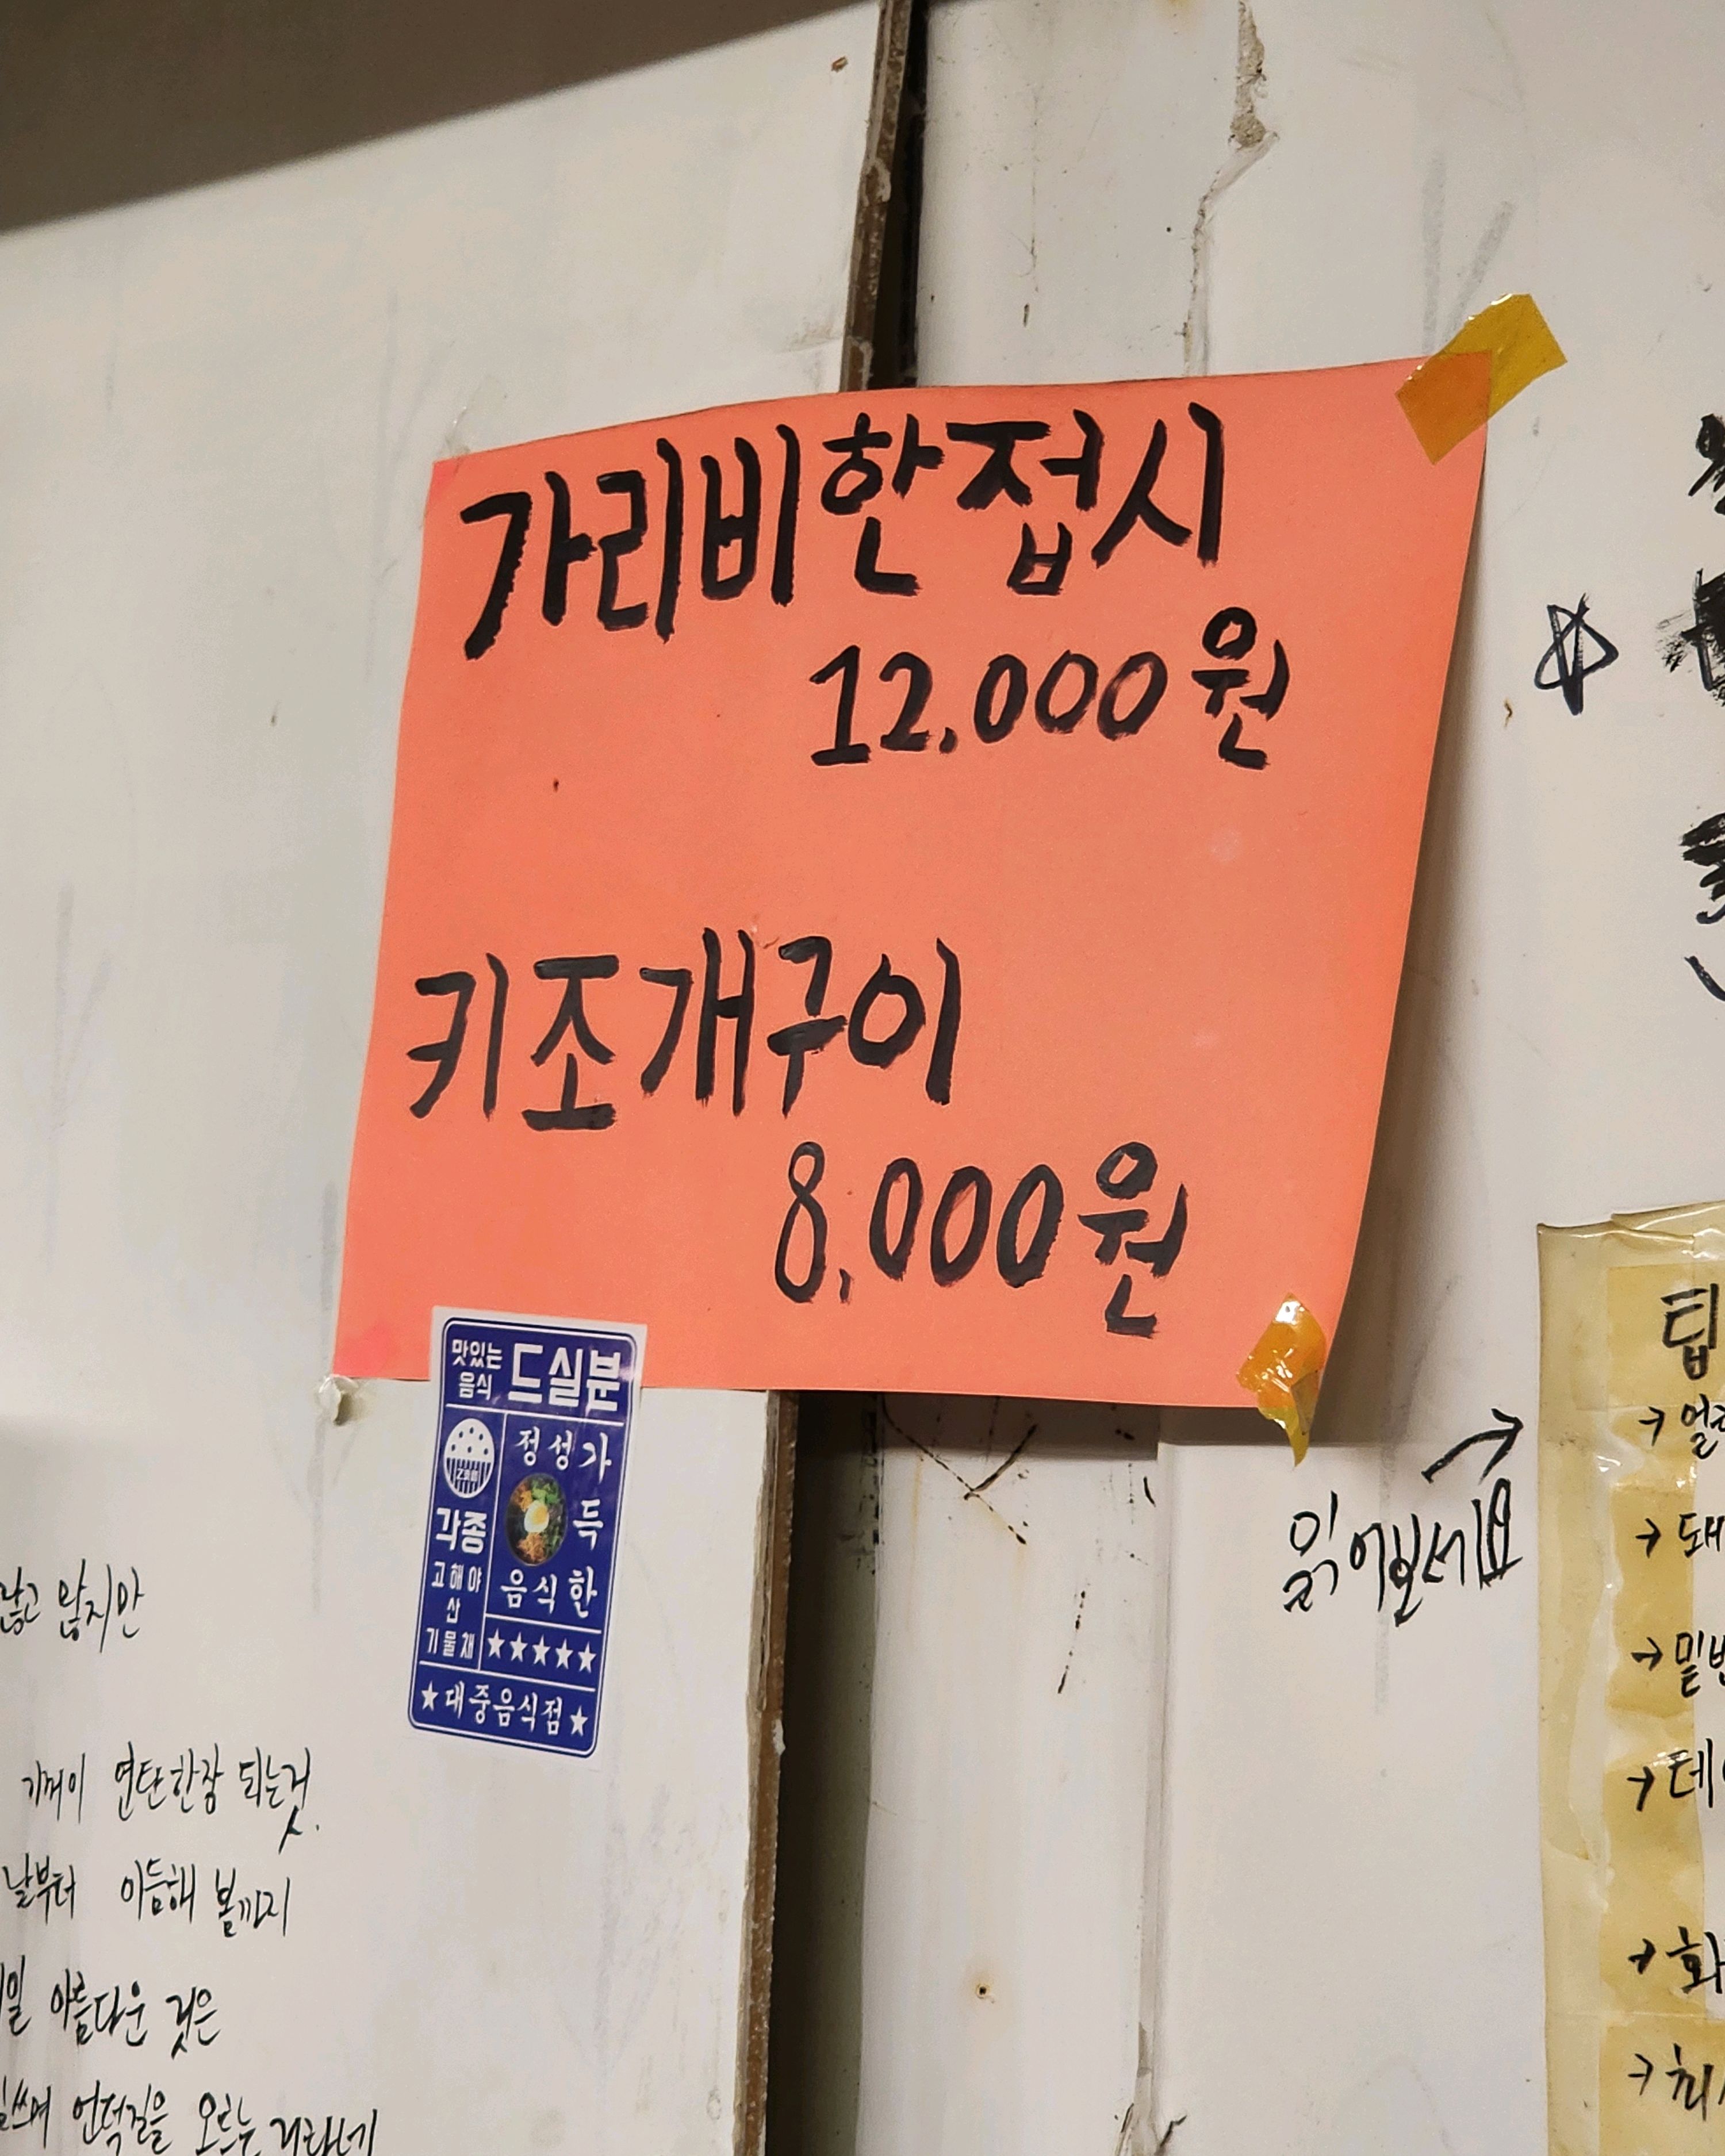 가리비한접시
12,000원
키조개구이
8,000원
맛있는
음식
드실분
정성가
득
음식한
각종
고해야
산
기물채
★★★★★
★대중음식점★
않지만
기꺼이 연탄한장 되는것.
날부터 이듬해 봄까지
아름다운 것은
언덕길을 오르는 거라네
읽어보세요
팁
→
→
→
→
→
→